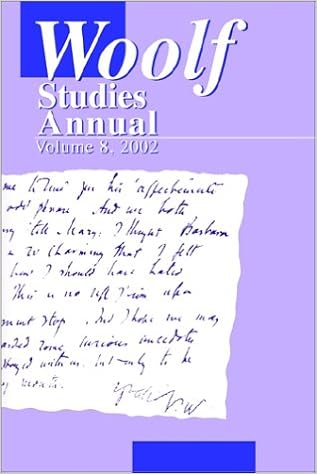 Woolf
Studies
Annual
Volume 8, 2002
me to send you his "affectionate
odd phrase. And we both
ng tell Mary: I thought Barbara
so charming that I felt
how I should have hated
This is no left
must stop. And I hope we may
some curious anecdotes
with us. but only to be